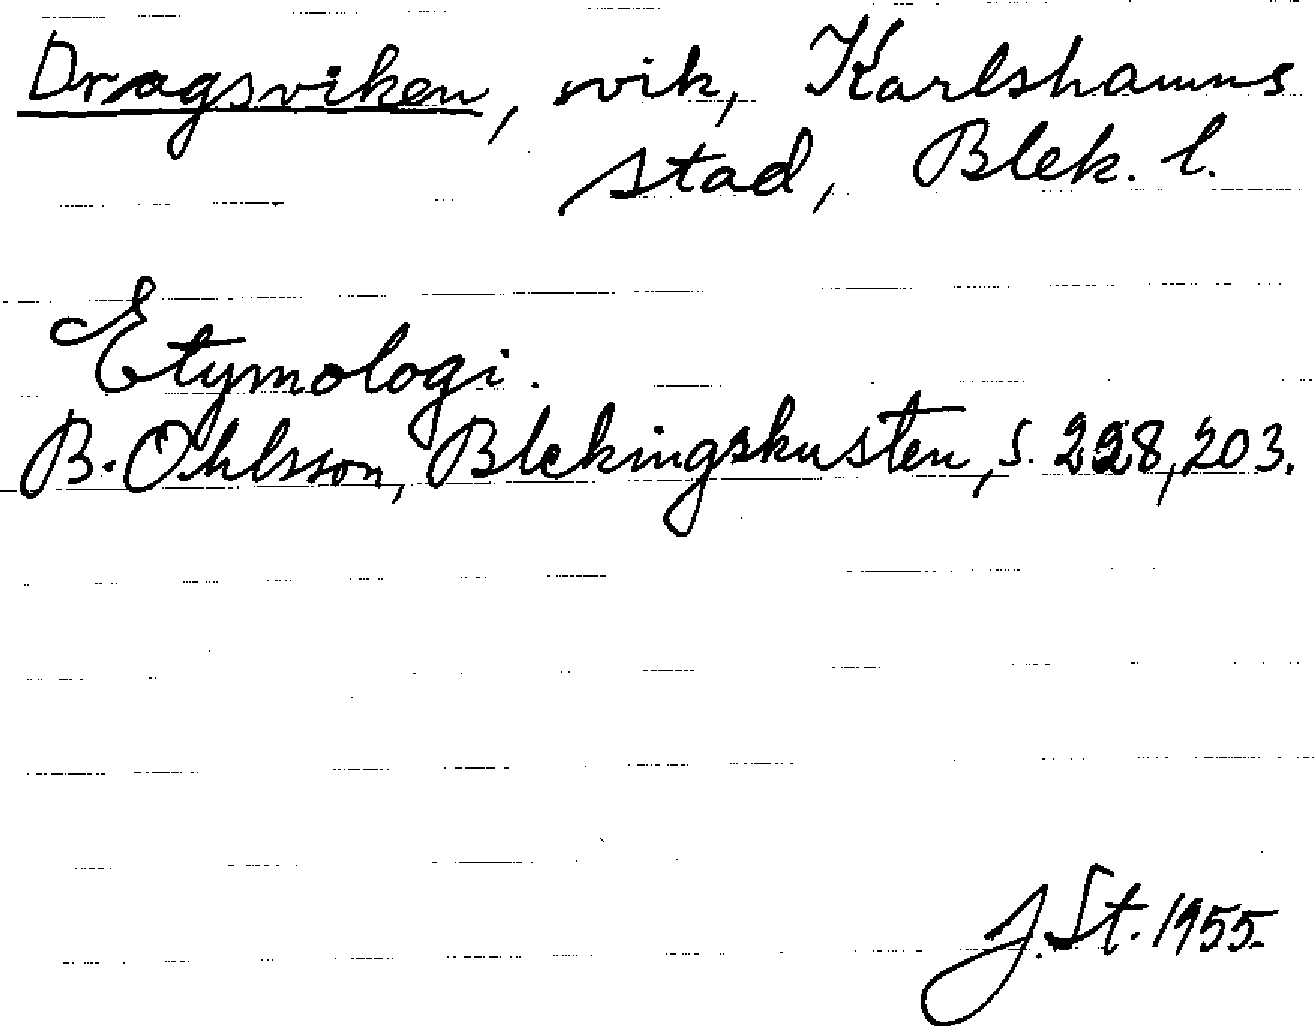 Dragsviken, vik, Karlshamns
stad, Blek. l.
Etymologi.
B. Ohlsson, Blekingskusten, s. 228, 203.
J. St. 1955.